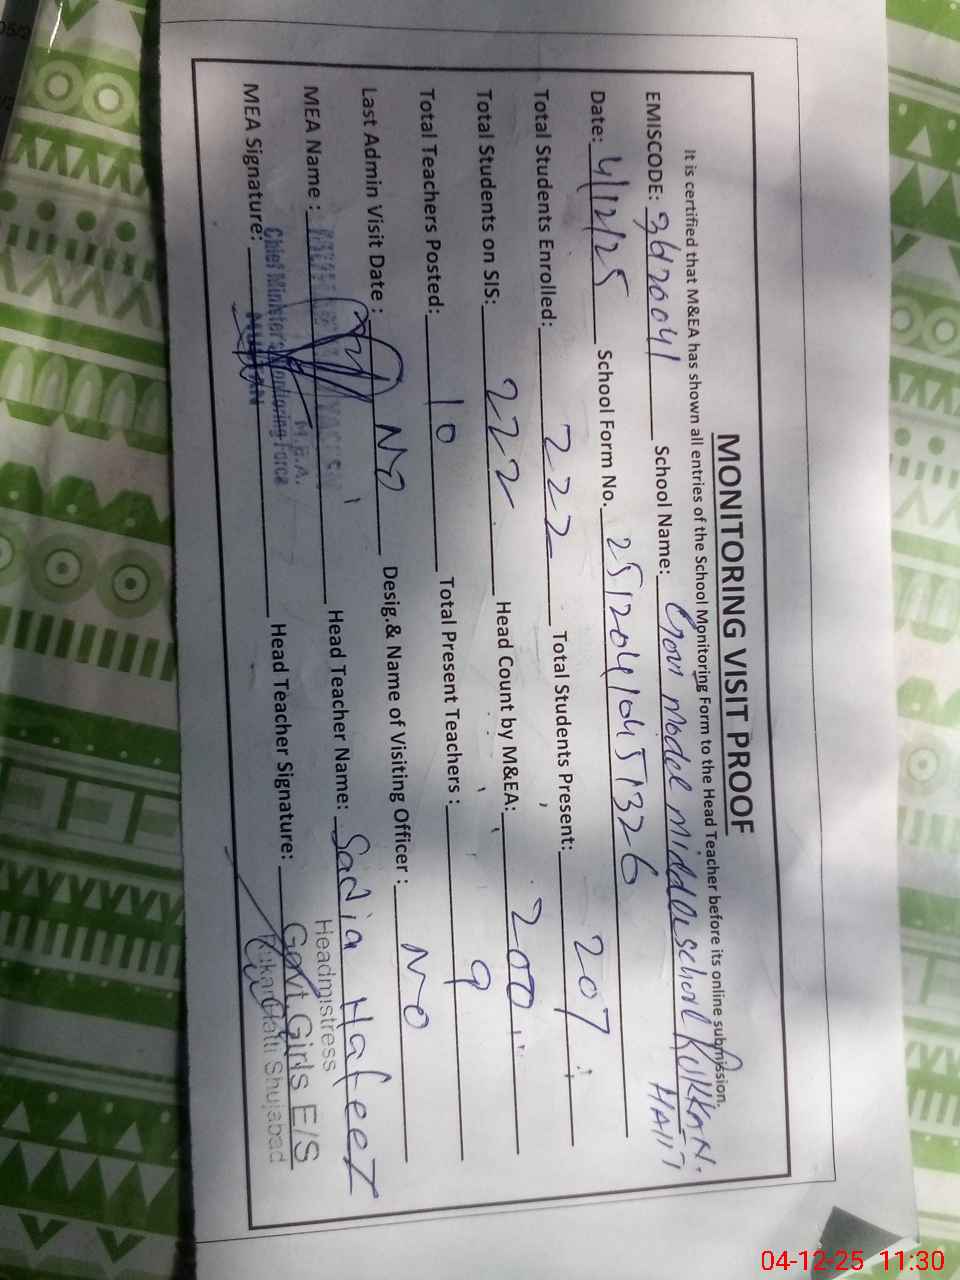 MONITORING VISIT PROOF
It is certified that M&EA has shown all entries of the School Monitoring Form to the Head Teacher before its online submission.
EMISCODE: 36120041 School Name: Govt Model Middle School Rukkan.
HAtti
Date: 4/12/25 School Form No. 251204104151326
Total Students Enrolled: 222 Total Students Present: 207
Total Students on SIS: 222 Head Count by M&EA: 200
Total Teachers Posted: 10 Total Present Teachers : 9
Last Admin Visit Date : No Desig.& Name of Visiting Officer : No
MEA Name : Head Teacher Name: Sadia Hafeez
M.E.A.
Chief Minister's Monitoring Force
Headmistress
MEA Signature: Head Teacher Signature:
Govt. Girls E/S
Shujabad
04-12-25 11:30